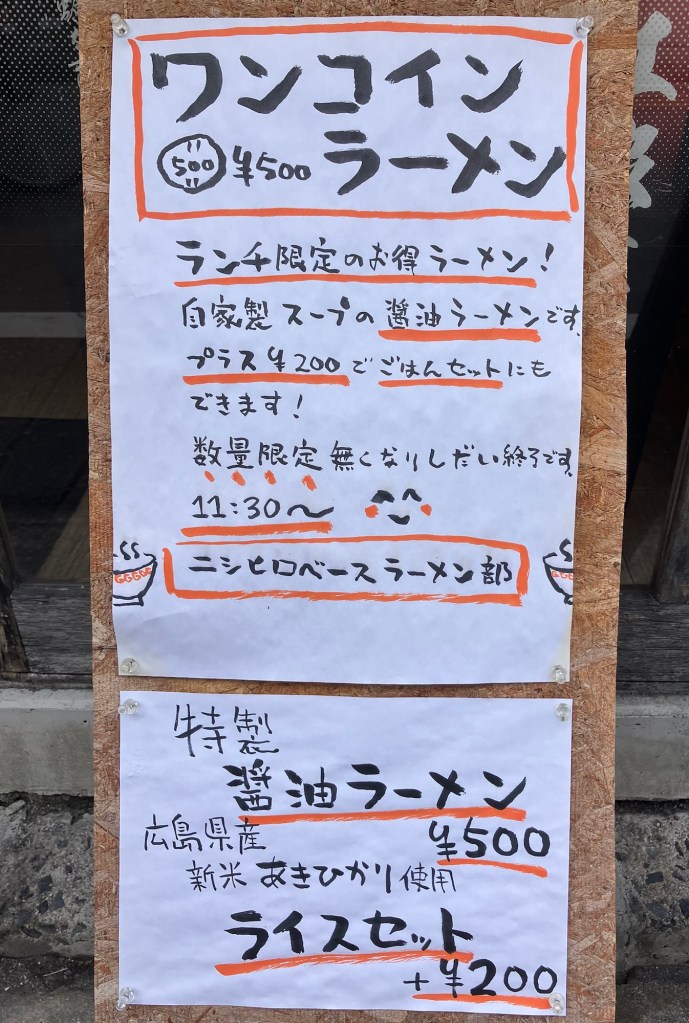 ワンコイン
500 ¥500 ラーメン
ランチ限定のお得ラーメン！
自家製スープの醤油ラーメンです。
プラス¥200でごはんセットにも
できます！
数量限定 無くなりしだい終了です。
11:30〜
ニシヒロベースラーメン部
特製
醤油ラーメン
広島県産 ¥500
新米あきひかり使用
ライスセット
+¥200